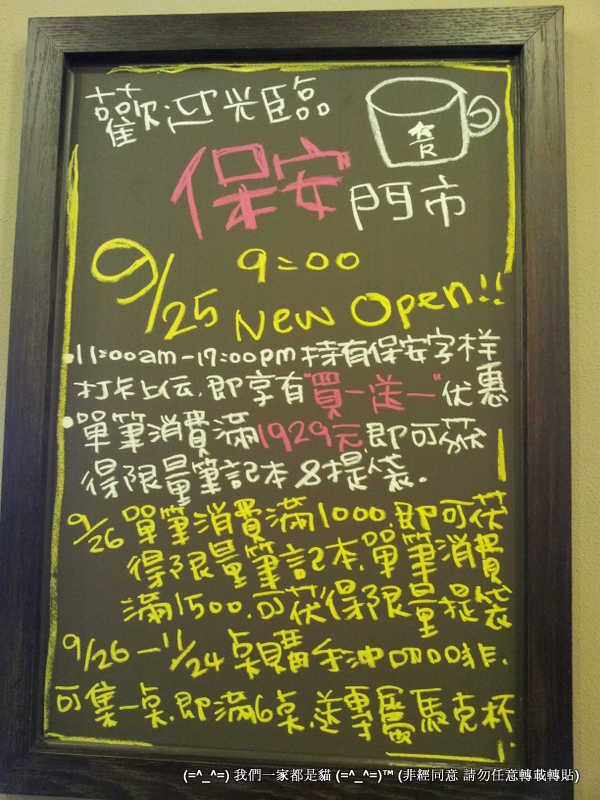 歡迎光臨
保安門市
9/25 9:00
New Open!!
11:00am-17:00pm 持有保安字样
打卡上传,即享有"買一送一"优惠
單筆消費滿1929元,即可获
得限量筆記本&提袋.
9/26 單筆消費滿1000.即可获
得限量筆記本,單筆消費
滿1500.可获得限量提袋
9/26-11/24 桌購手沖咖啡.
可集一桌.即滿6桌,送專屬馬克杯
(=^_^=) 我們一家都是貓 (=^_^=)™ (非經同意 請勿任意轉載轉貼)